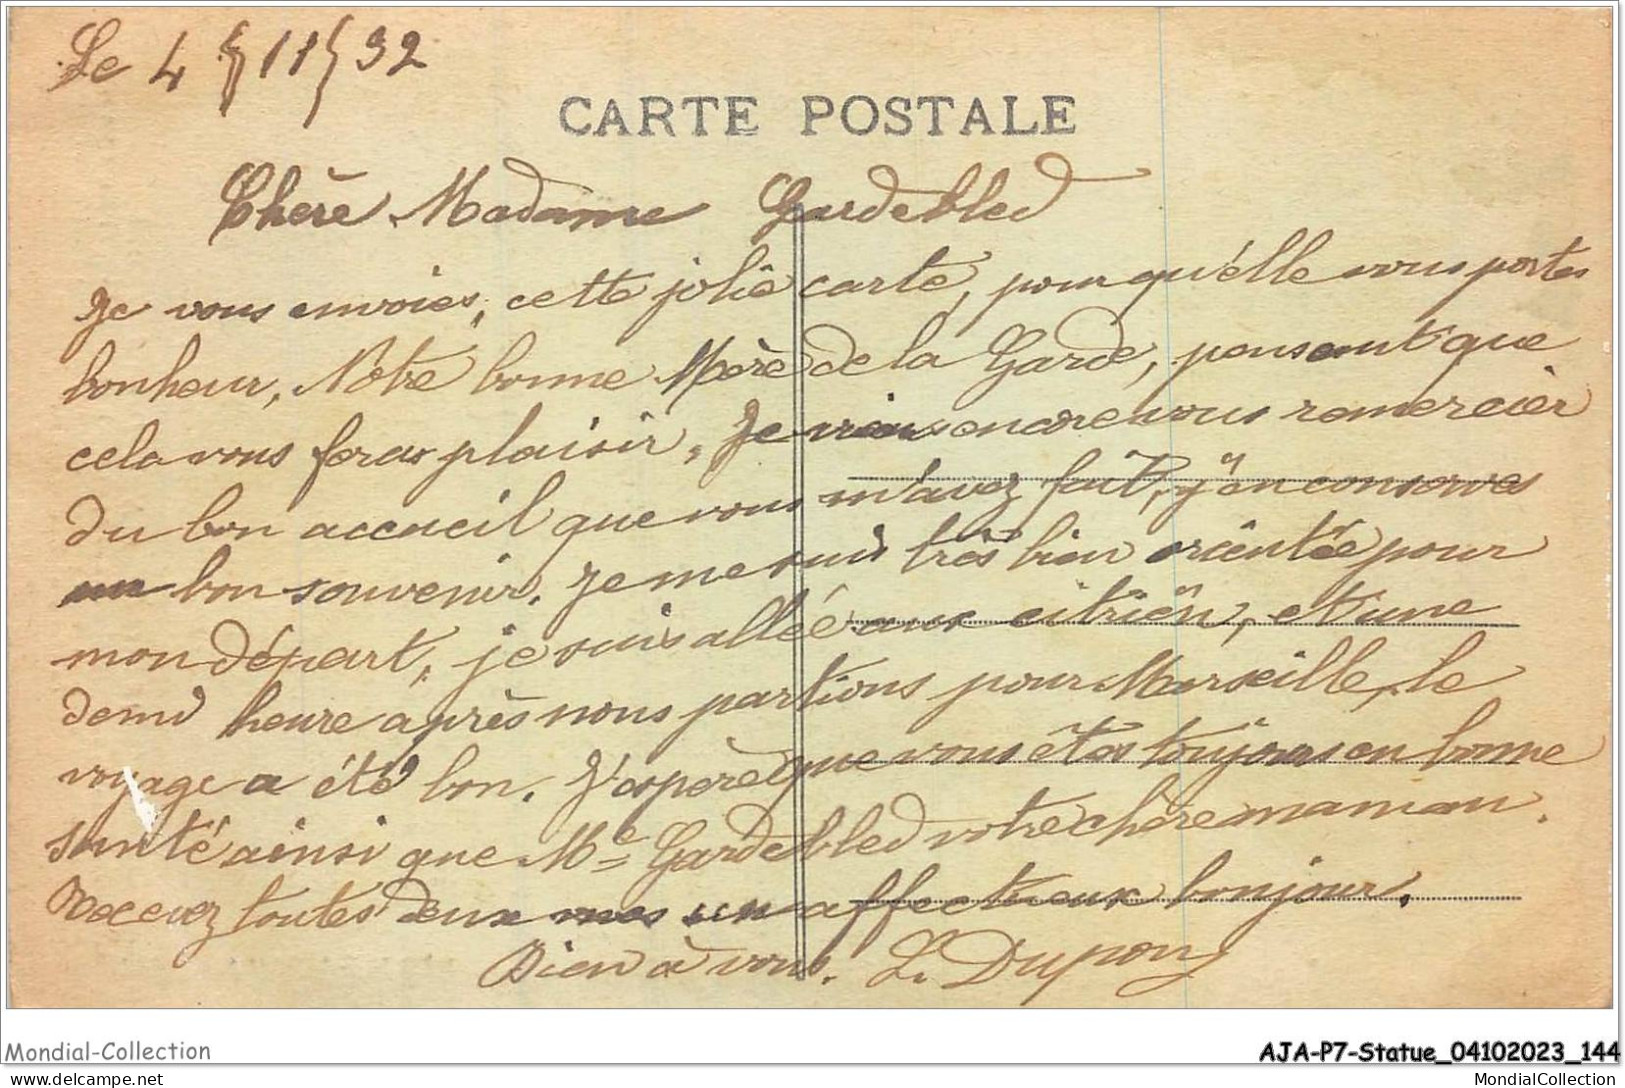 Le 4 / 11 / 32
CARTE POSTALE
Chère Madame Gardebled
Je vous envoies, cette jolie carte, pour qu'élle vous portes
bonheur, Notre bonne Mère de la Garde, pensant que
cela vous feras plaisir, Je viens encore vous remercier
du bon accueil que vous m'avez fait, j'en conserves
un bon souvenir. Je me suis très bien orientée pour
mon départ, je suis allée aux citrïen, et une
demi heure après nous partions pour Marseille, le
voyage a été bon. J'espère que vous êtes toujours en bonne
santé ainsi que Me Gardebled votre chère maman.
Recevez toutes deux mes un affectueux bonjour.
Bien à vous. L. Dupony
Mondial-Collection
AJA-P7-Statue_04102023_144
delcampe.net
MondialCollection